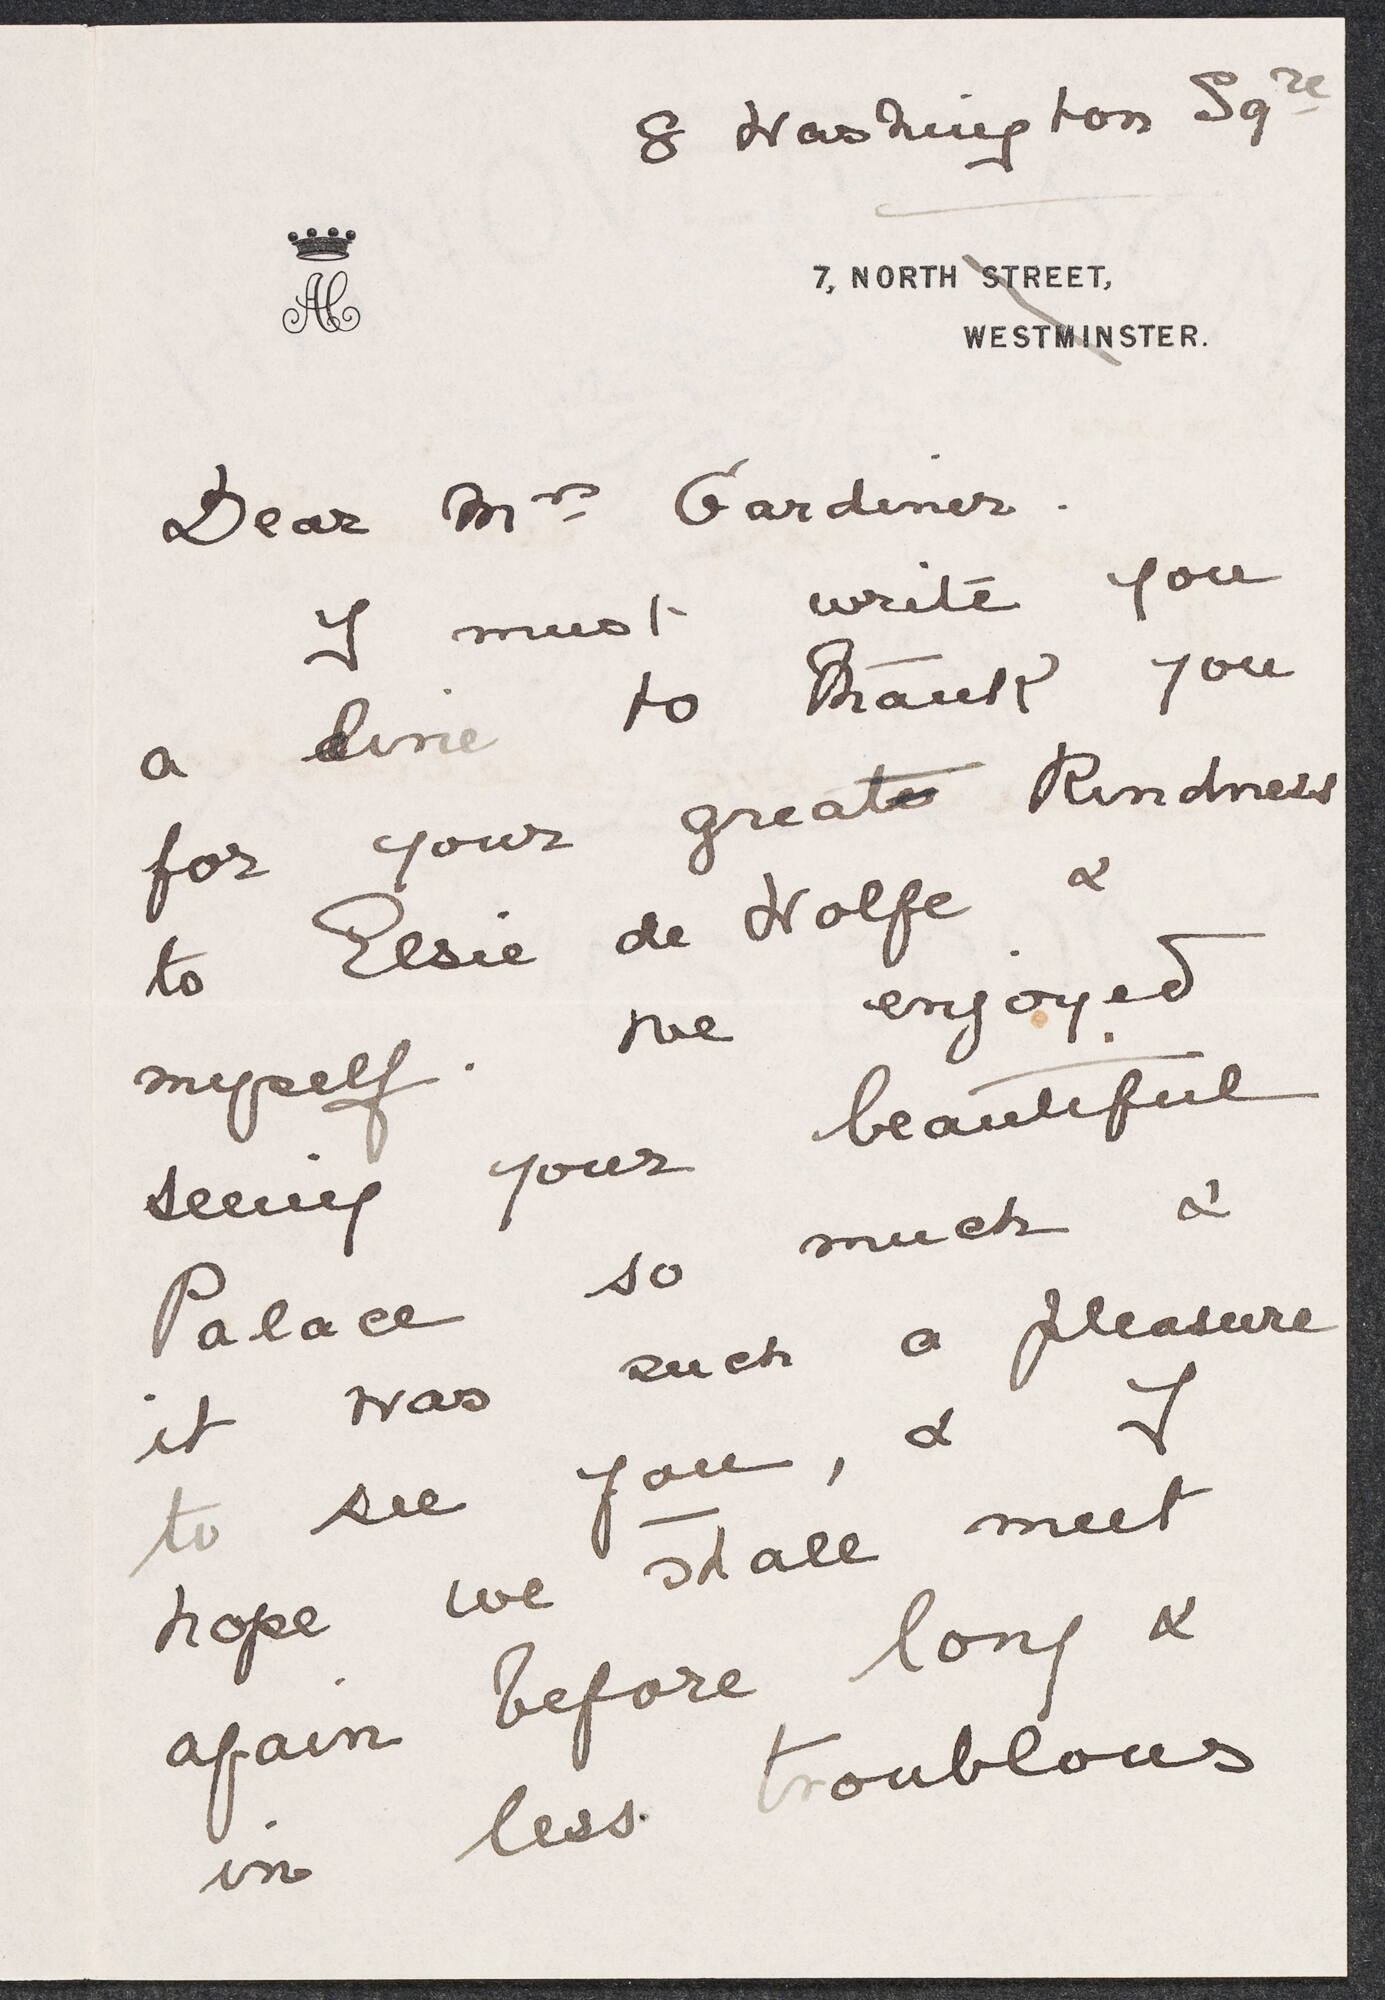 8 Washington Sqre
AC
7, NORTH STREET,
WESTMINSTER.
Dear Mrs Gardiner.
I must write you
a line to thank you
for your great kindness
to Elsie de Wolfe &
myself. We enjoyed
seeing your beautiful
Palace so much &
it was such a pleasure
to see you, & I
hope we shall meet
again before long &
in less troublous